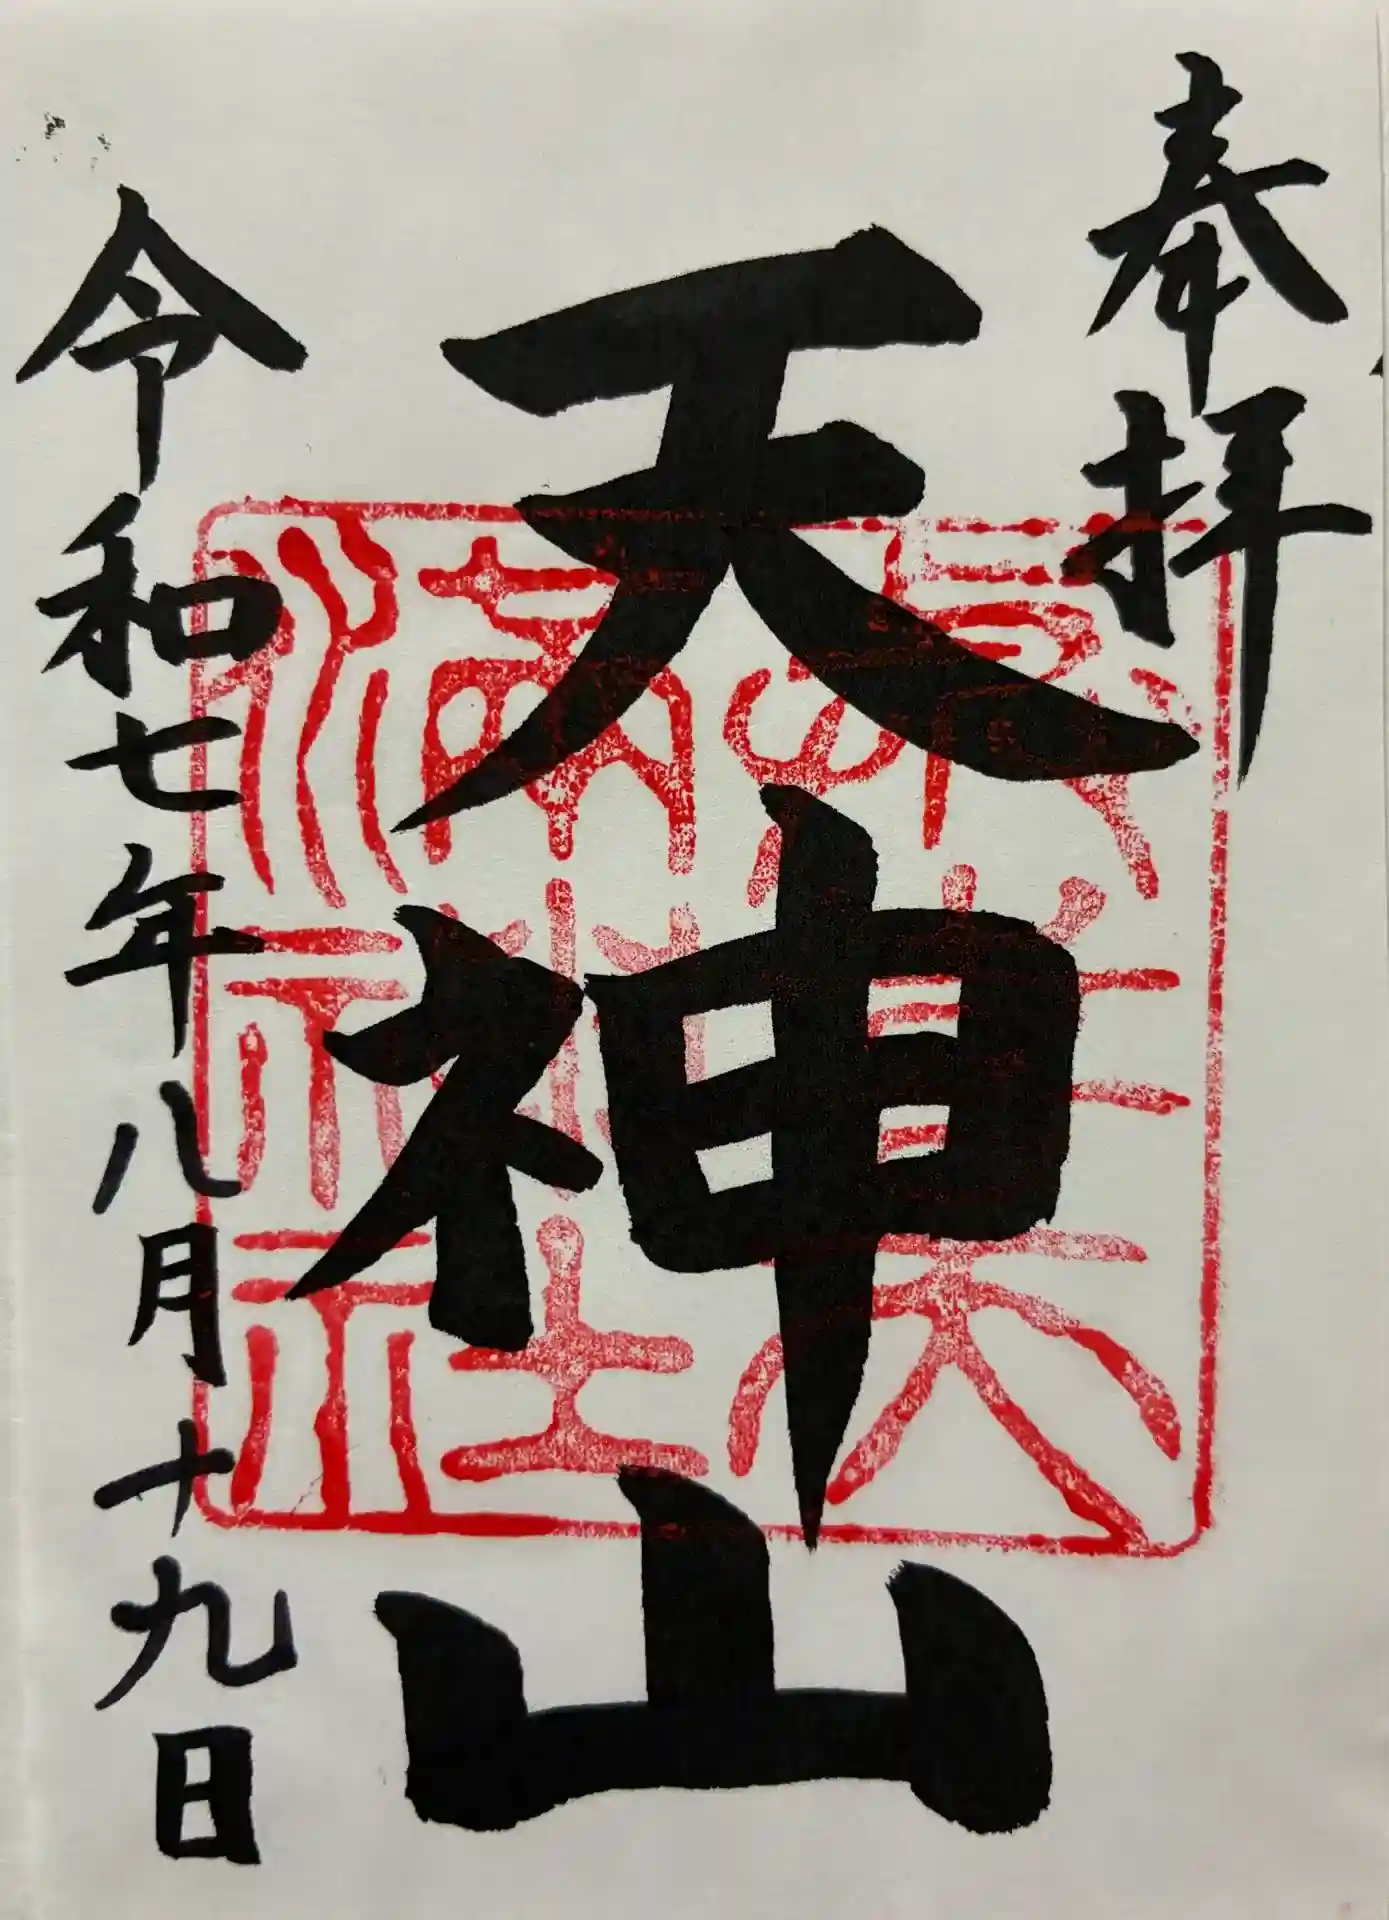 奉拝
天神山
令和七年八月十九日